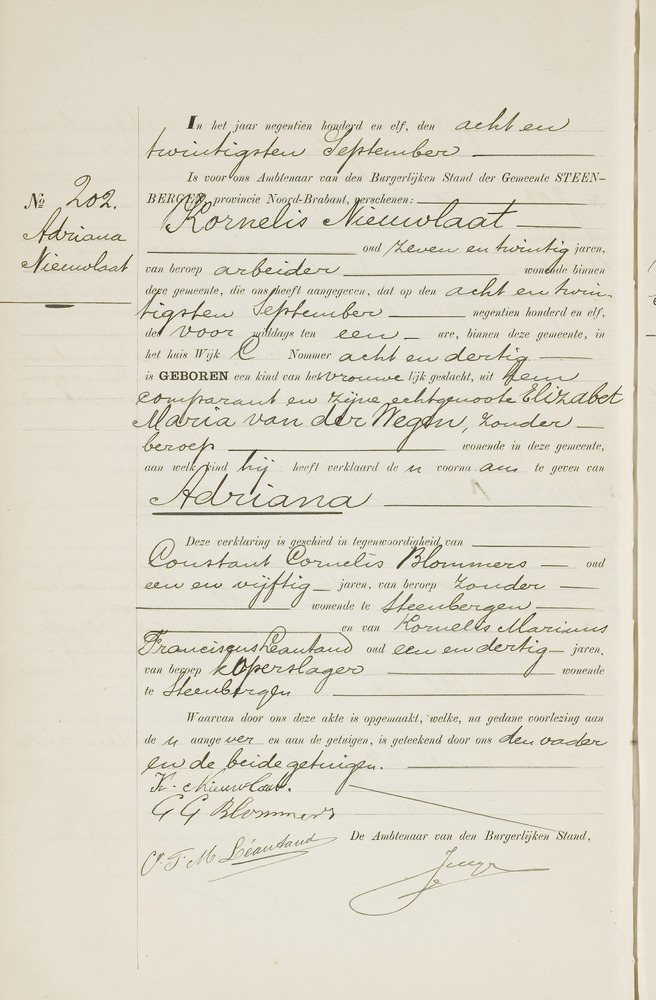 Nº 202.
Adriana
Nieuwlaat
In het jaar negentien honderd en elf, den acht en
twintigsten September
Is voor ons Ambtenaar van den Burgerlijken Stand der Gemeente STEEN-
BERGEN, provincie Noord-Brabant, verschenen:
Kornelis Nieuwlaat
oud zeven en twintig jaren,
van beroep arbeider wonende binnen
deze gemeente, die ons heeft aangegeven, dat op den acht en twin-
tigsten September negentien honderd en elf,
des voor middags ten een ure, binnen deze gemeente, in
het huis Wijk C Nommer acht en dertig
is GEBOREN een kind van het vrouwe lijk geslacht, uit hem
comparant en zijne echtgenoote Elizabet
Maria van der Wegen, zonder
beroep wonende in deze gemeente,
aan welk kind hij heeft verklaard de n voorna am te geven van
Adriana
Deze verklaring is geschied in tegenwoordigheid van
Constant Cornelis Blommers oud
een en vijftig jaren, van beroep zonder
wonende te Steenbergen
en van Kornelis Marinus
Franciscus Leautaud oud een en dertig jaren,
van beroep koperslager wonende
te Steenbergen
Waarvan door ons deze akte is opgemaakt, welke, na gedane voorlezing aan
de n aange ver en aan de getuigen, is geteekend door ons den vader
en de beide getuigen.
K. Nieuwlaat.
C C Blommers
De Ambtenaar van den Burgerlijken Stand,
C. F. M Léautaud